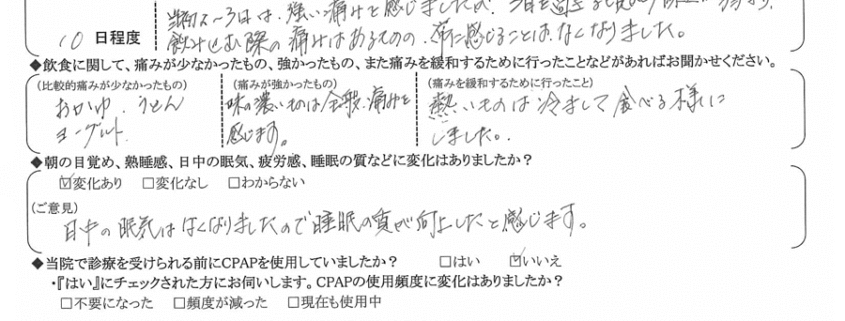 当初2〜3日は、強い痛みを感じましたが、3日を過ぎると
10 日程度 飲み込む際の痛みはあるものの、常に感じることは、なくなりました。
◆飲食に関して、痛みが少なかったもの、強かったもの、また痛みを緩和するために行ったことなどがあればお聞かせください。
(比較的痛みが少なかったもの) (痛みが強かったもの) (痛みを緩和するために行ったこと)
おかゆ、うどん 味の濃いものは全般、痛みを 熱いものは冷まして食べる様に
ヨーグルト 感じます。 しました。
◆朝の目覚め、熟睡感、日中の眠気、疲労感、睡眠の質などに変化はありましたか？
☑変化あり □変化なし □わからない
(ご意見)
日中の眠気はなくなりましたので睡眠の質が向上したと感じます。
◆当院で診療を受けられる前にCPAPを使用していましたか？ □はい ☑いいえ
・『はい』にチェックされた方にお伺いします。CPAPの使用頻度に変化はありましたか？
□不要になった □頻度が減った □現在も使用中